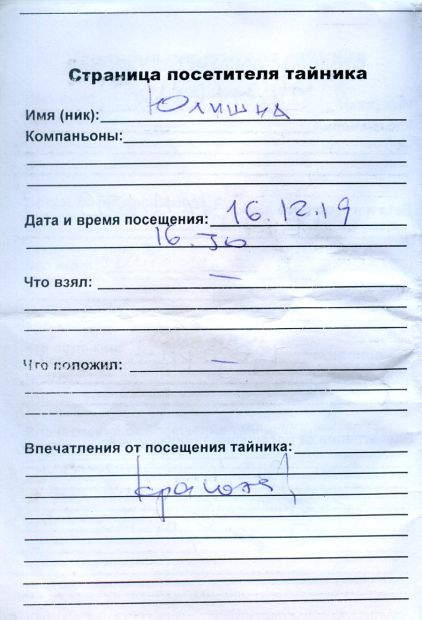 Страница посетителя тайника
Имя (ник): Юлишна
Компаньоны:
Дата и время посещения: 16.12.19
16.30
Что взял: —
Что положил: —
Впечатления от посещения тайника: